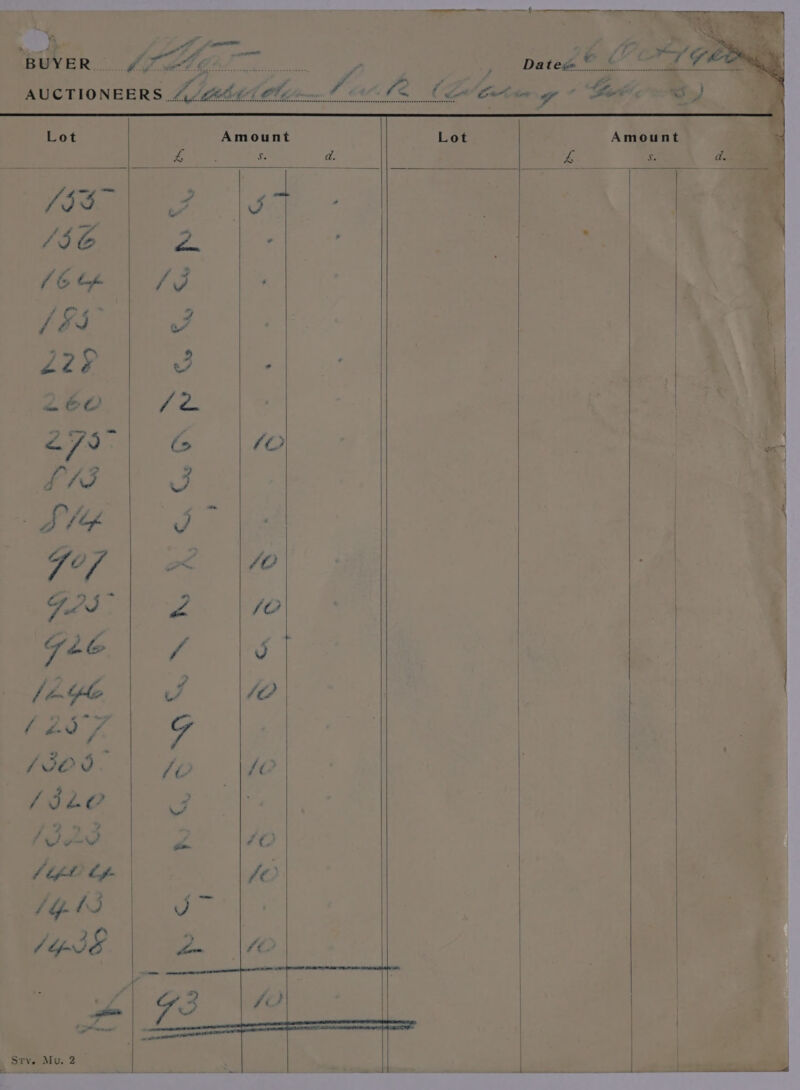 BUYER
Dated 26 Oct
AUCTIONEERS
Lot Amount Lot Amount
£ s. d. £ s. d.
155 3 5 -
156 2 - -
164 13 -
185 3 -
228 3 - -
260 12 -
275 6 10
813 3
814 5 -
907 2 10
925 2 10
926 1 5
1246 3 10
1257 9
1305 10 10
1320 3
1323 2 10
1404 10
1413 5
1438 2 10
£ 93 10
Sty. Mu. 2